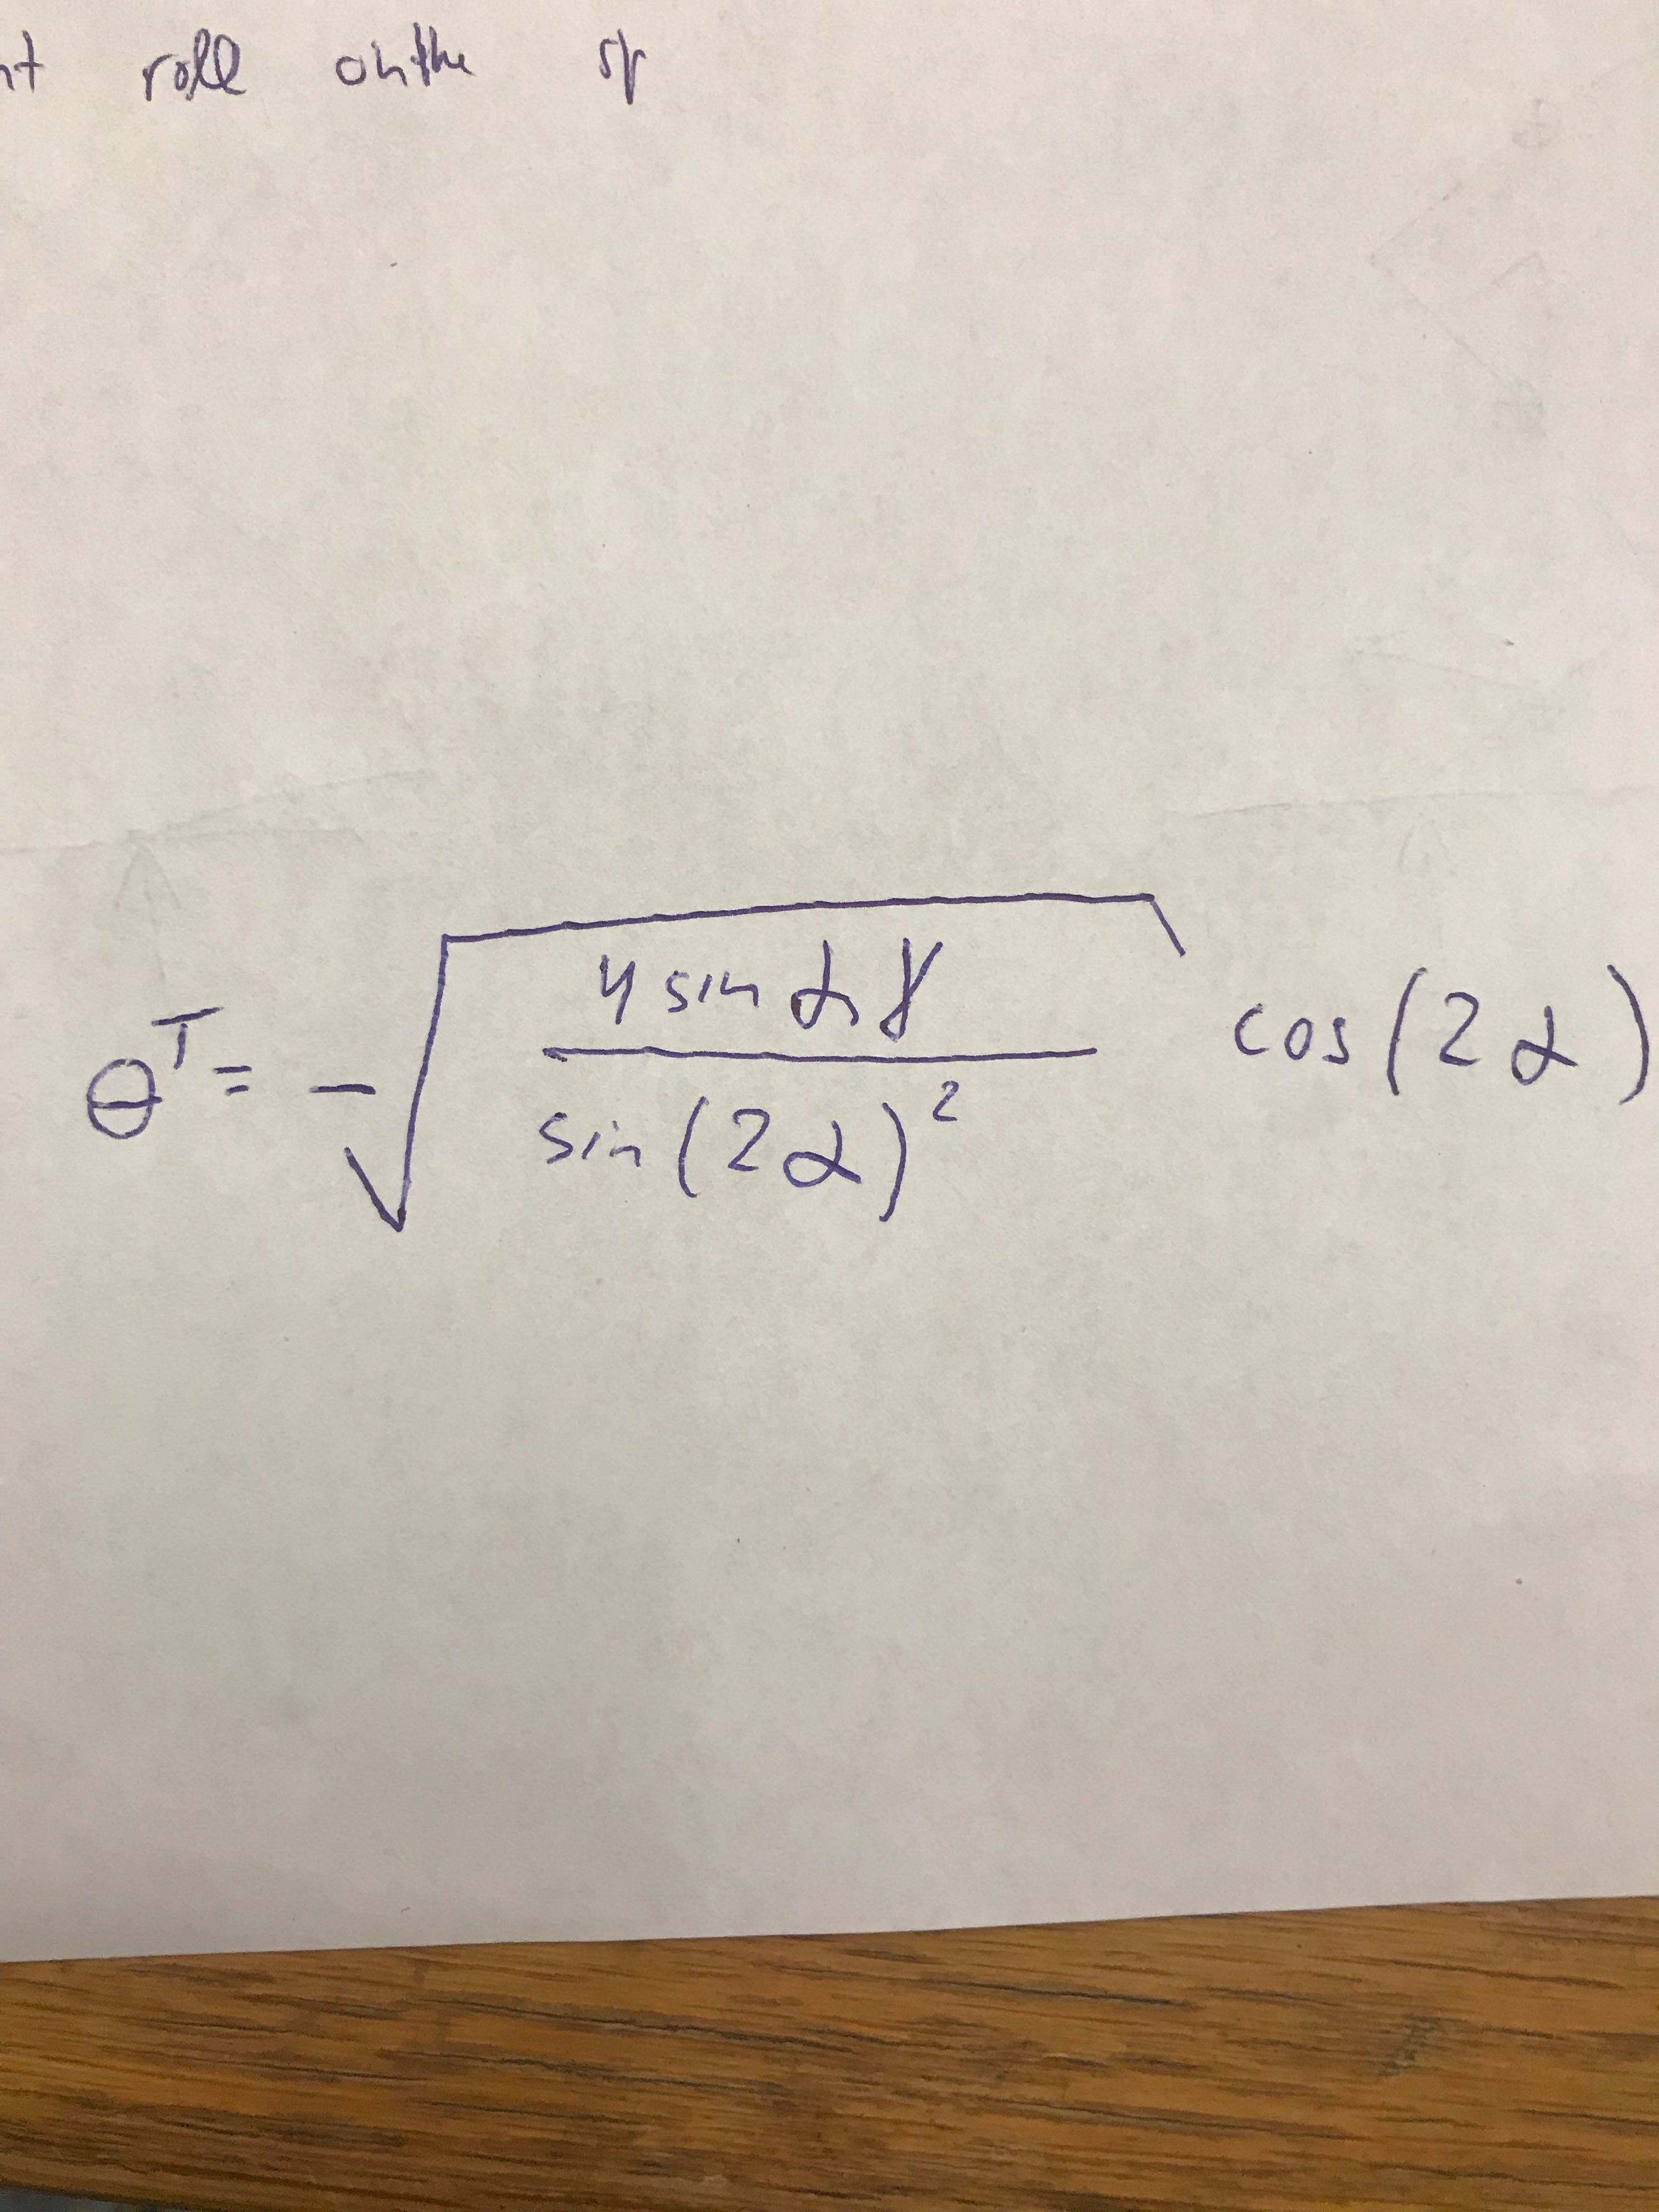 nt roll on the sp
θ^T = -√(4 sin α γ / sin(2α)^2) cos(2α)